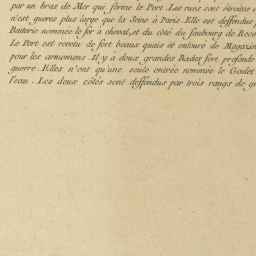 par un bras de Mer qui forme le Port. Les rues sont étroites
n'est gueres plus large que la Seine à Paris. Elle est deffendue
Batterie nommée le fer à cheval, et du côté du faubourg de
Le Port est revetu de fort beaux quais et entouré de Magazins
pour les armemens. Il y a deux grandes Rades fort profonde
guerre. Elles n'ont qu'une seule entrée nommée le Goulet
l'eau. Les deux côtés sont deffendus par trois rangs de